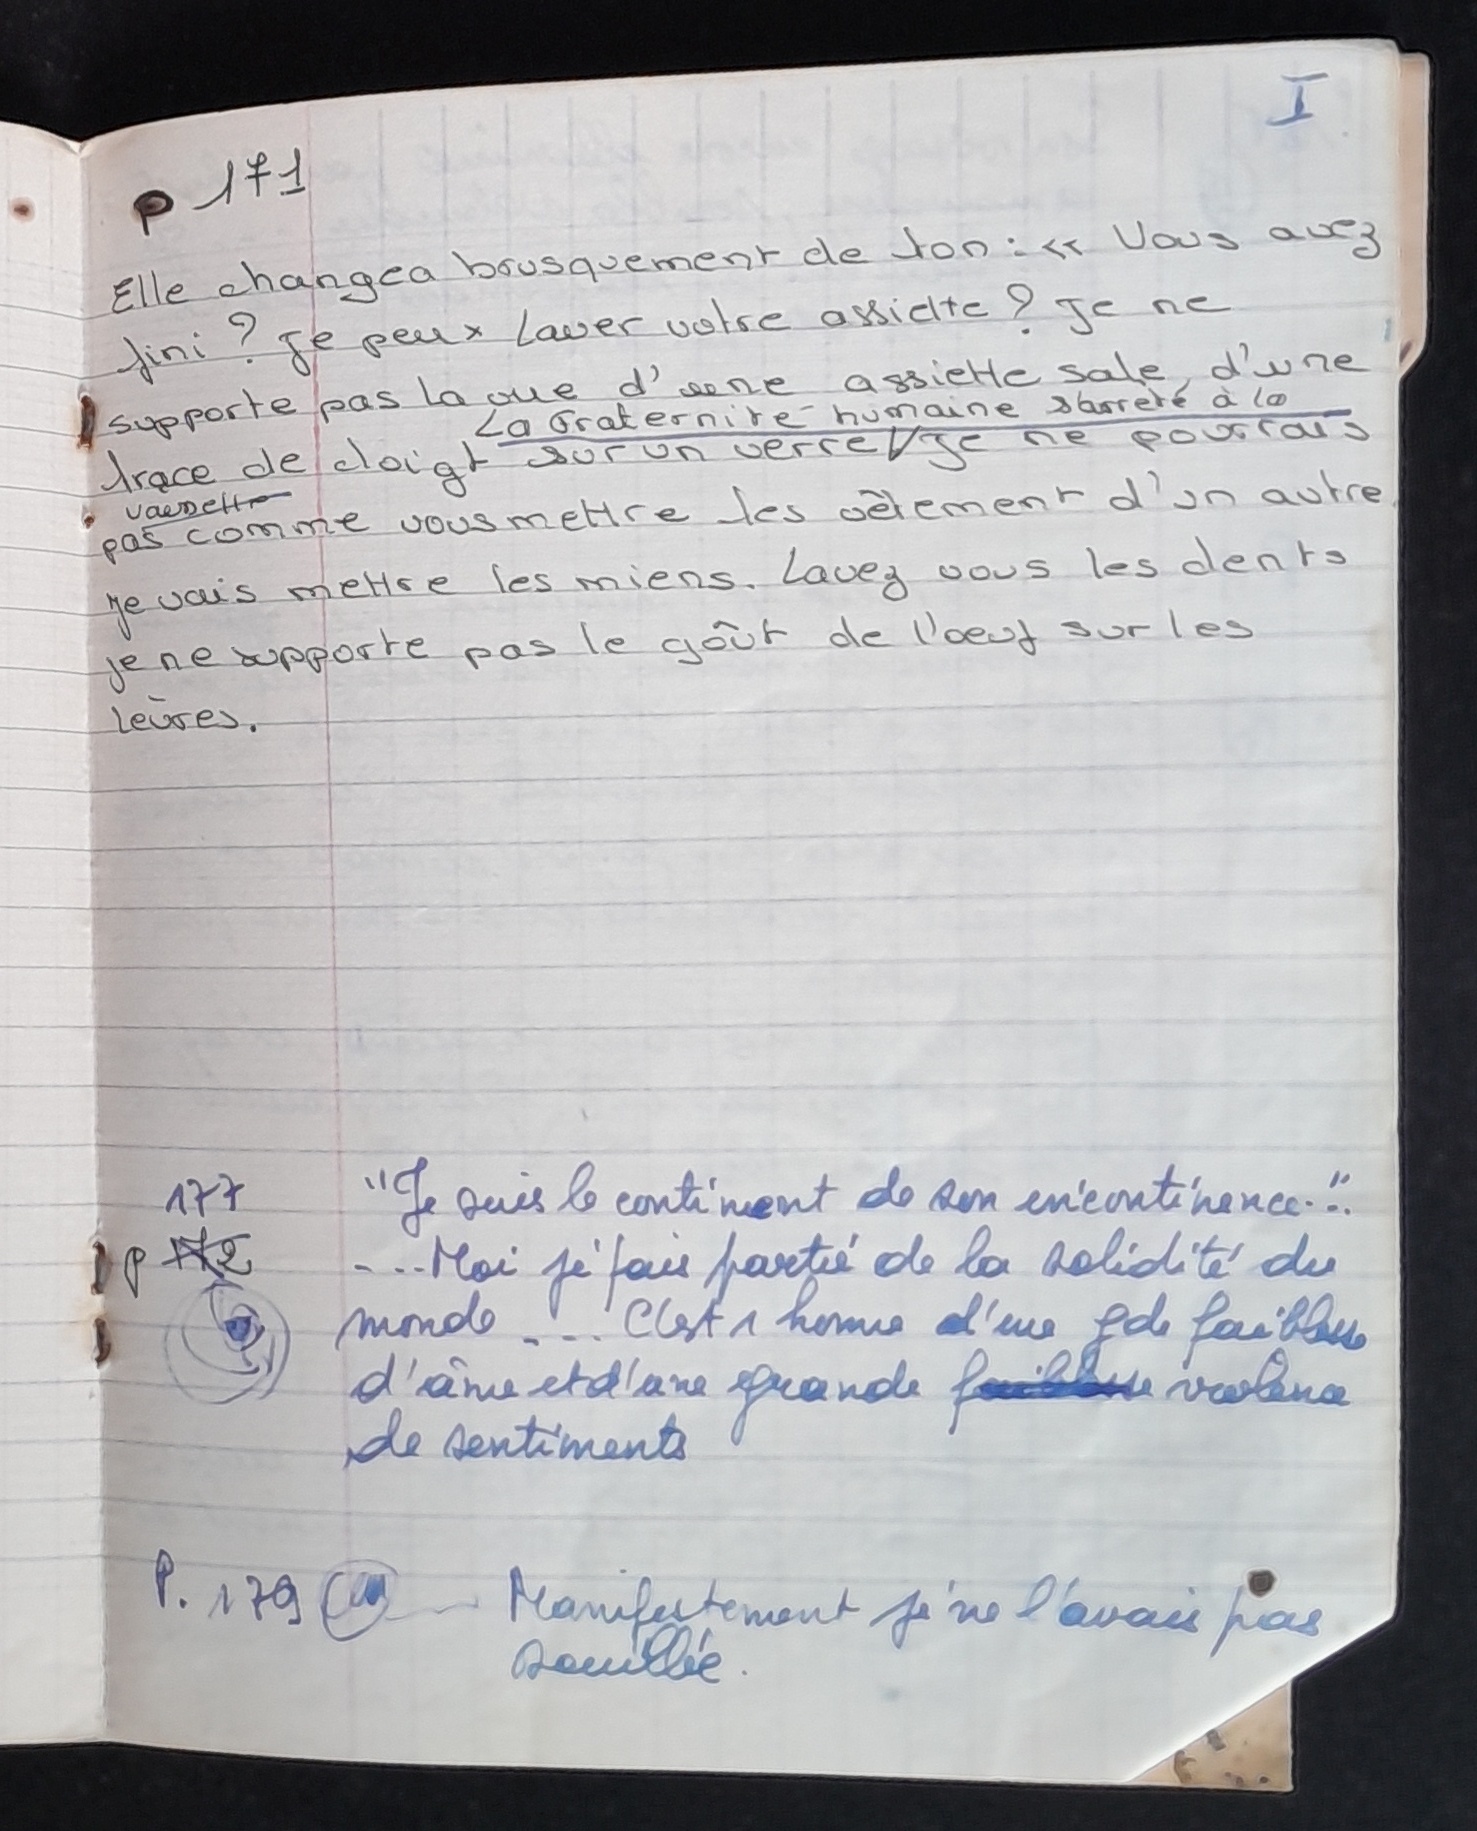 I
p 171
Elle changea brusquement de ton : « Vous avez
fini ? Je peux laver votre assiette ? Je ne
supporte pas la vue d'une assiette sale, d'une
La fraternité humaine s'arrete à la
trace de doigt sur un verre / Je ne pourrais
vaisselle
pas comme vous mettre les vêtement d'un autre
je vais mettre les miens. Lavez vous les dents
je ne supporte pas le goût de l'oeuf sur les
lèvres.
177 "Je suis le continent de son incontinence..."
p 172 ....Moi je fais partie de la solidité du
monde .... C'est 1 homme d'une gde faiblesse
d'âme et d'une grande faiblesse violence
de sentiments
P. 179 Manifestement je ne l'avais pas
souillée.